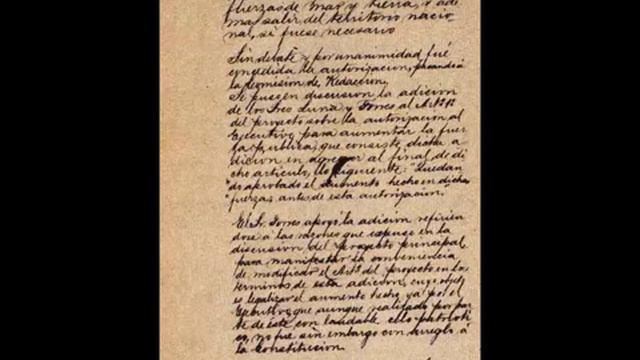 fuerzas de mar y tierra, y ade
mas, salir del territorio nacio
nal, si fuese necesario
Sin debate y por unanimidad fué
concedida la autorizacion, pasando á
la Comision de Redaccion.
Se puso en discusion la adicion
de los Sres Luna y Torres al Art. 1º
del proyecto sobre la autorizacion al
Ejecutivo para aumentar la fuer
za pública, que consiste, dicha a
dicion en agregar al final de di
cho articulo, lo siguiente: "Quedan
"do aprobado el aumento hecho en dichas
"fuerzas, antes de esta autorizacion.
El Sr. Torres apoyó la adicion refirien
dose a las razones que expuso en la
discusion del proyecto principal
para manifestar la conveniencia
de modificar el Art. del proyecto en los
terminos de esta adicion, cuyo objeto
es legalizar el aumento hecho ya por el
Ejecutivo, que aunque realizado por par
te de éste con laudable celo patrioti
co, no fué sin embargo con arreglo á
la Constitucion.